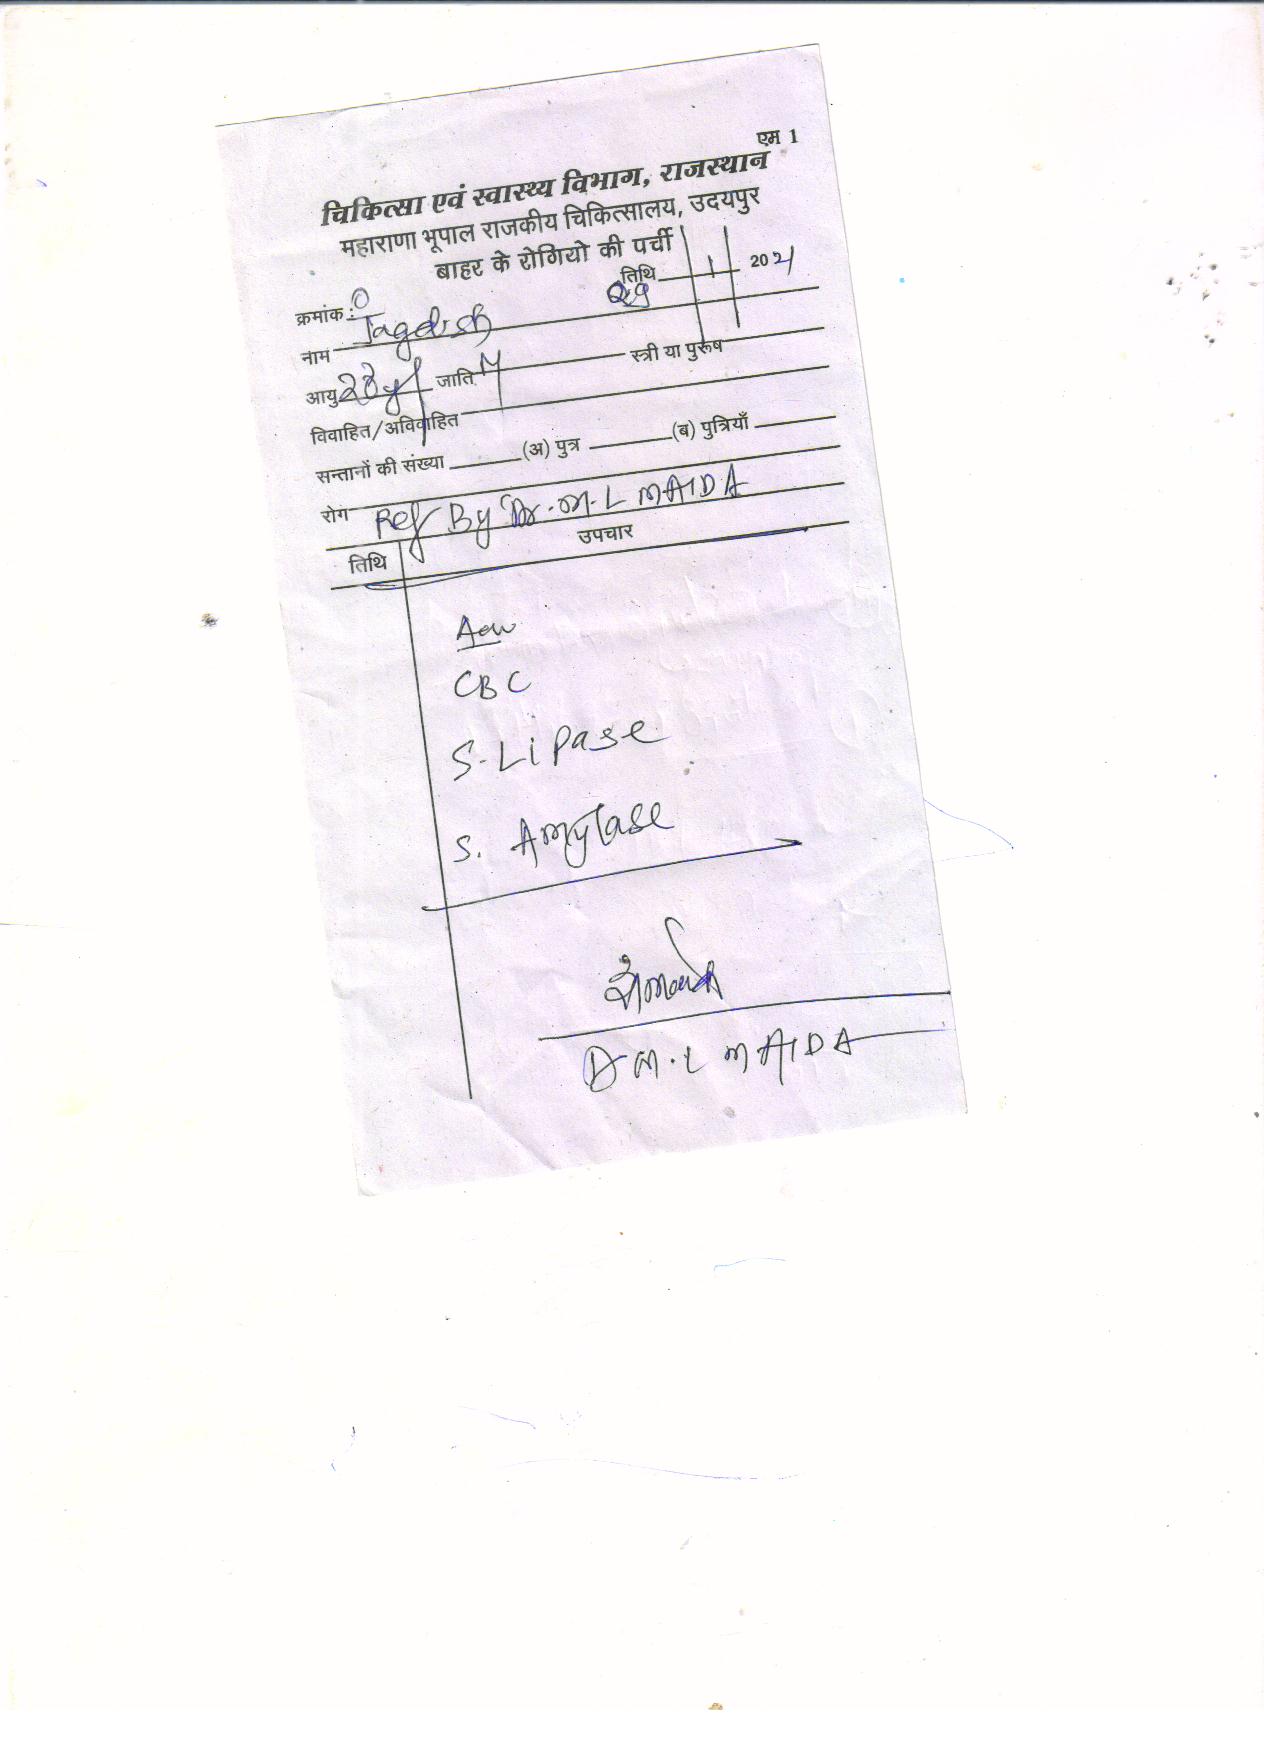 एम 1
चिकित्सा एवं स्वास्थ्य विभाग, राजस्थान
महाराणा भूपाल राजकीय चिकित्सालय, उदयपुर
बाहर के रोगियो की पर्ची
तिथि 29 1 2021
क्रमांक :
नाम Jagdish
आयु 28y जाति M स्त्री या पुरूष
विवाहित/अविवाहित
सन्तानों की संख्या (अ) पुत्र (ब) पुत्रियाँ
रोग Ref By Dr. M. L MAIDA
तिथि उपचार
CBC
S. Lipase
S. Amylase
Dr M. L MAIDA